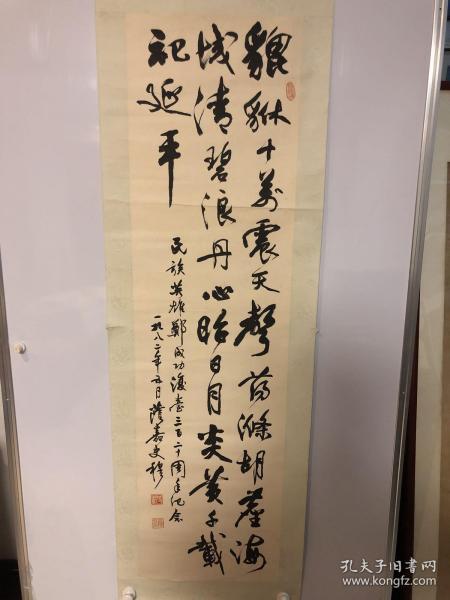 貔貅十万震天声荡涤胡尘海
域清碧浪丹心昭日月炎黄千载
祀延平
民族英雄郑成功复台三百二十周年纪念
一九八二年五月
孔夫子旧书网
www.kongfz.com